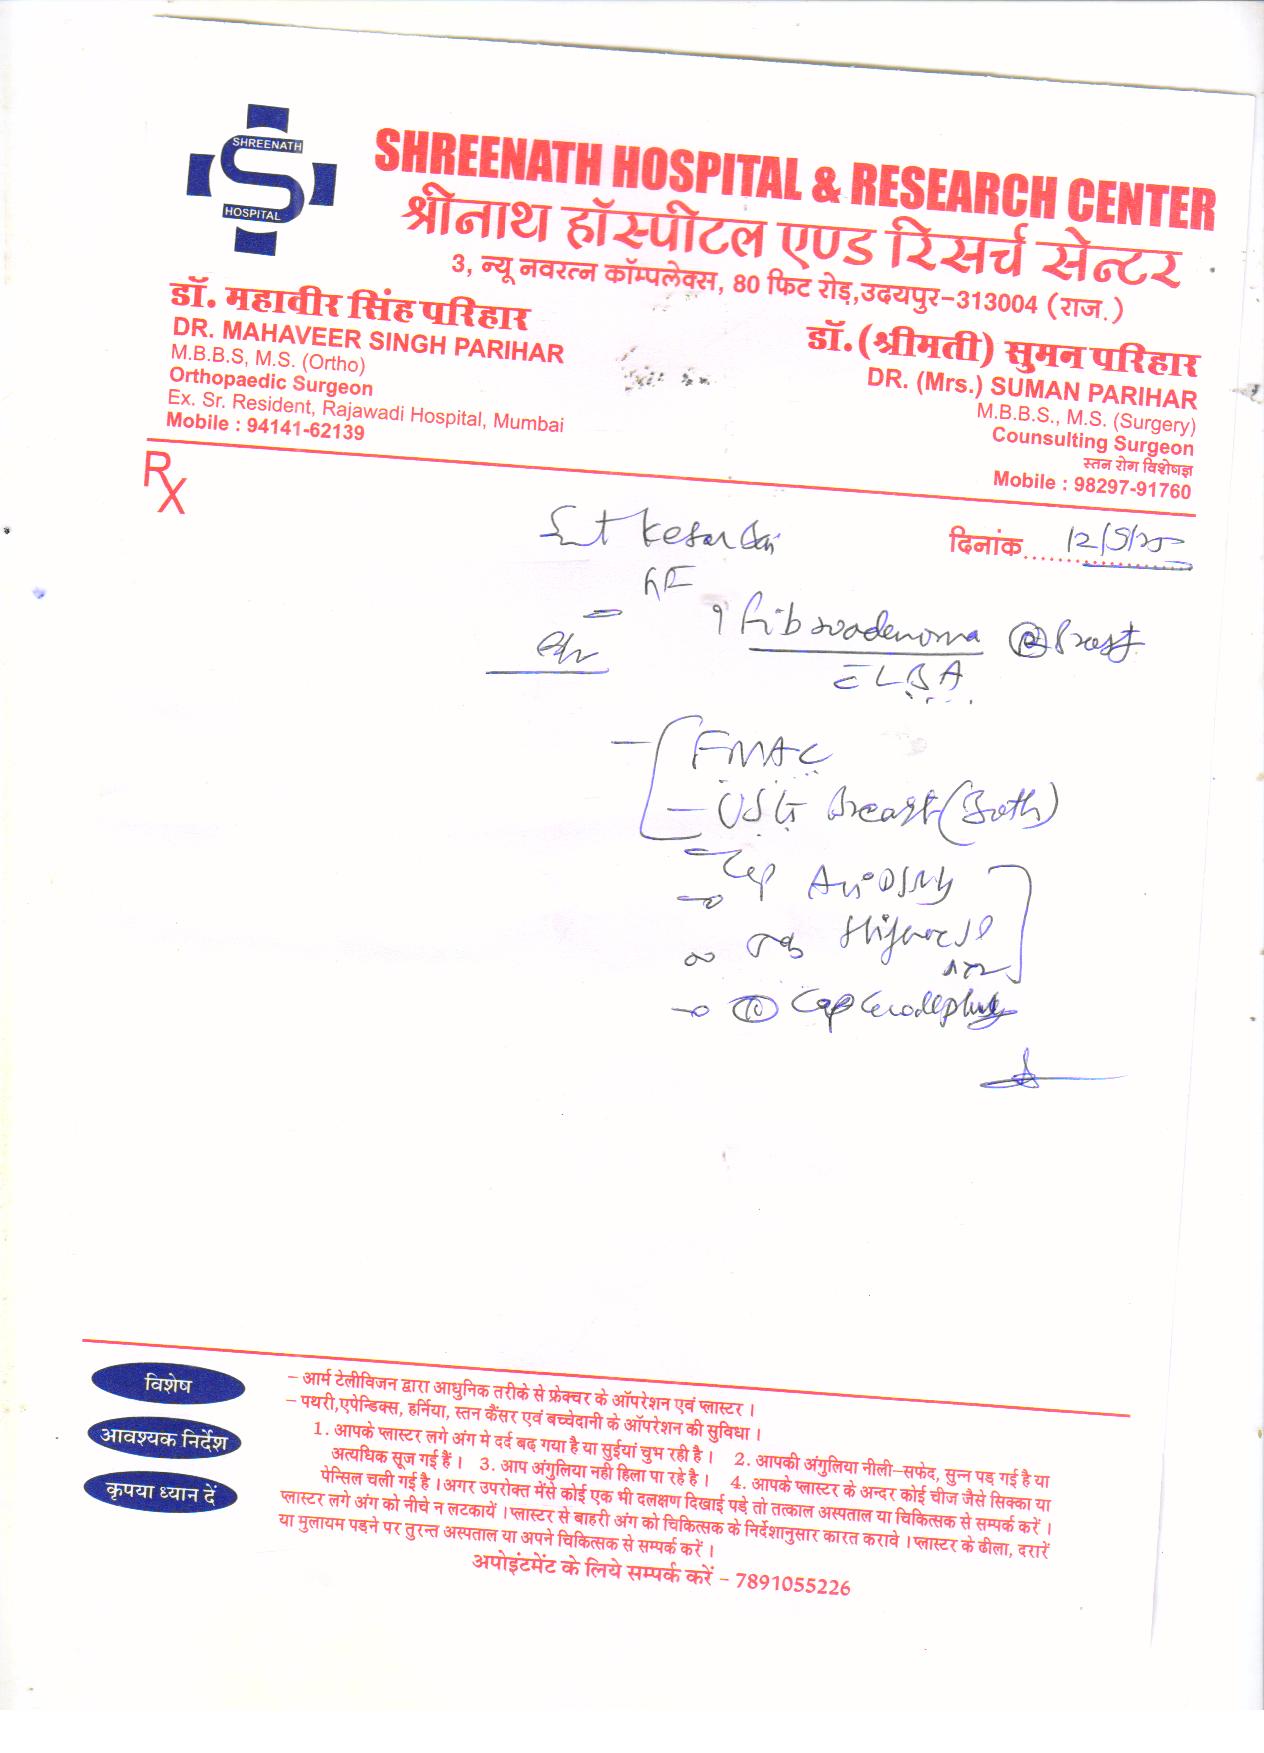 SHREENATH
HOSPITAL
SHREENATH HOSPITAL & RESEARCH CENTER
श्रीनाथ हॉस्पीटल एण्ड रिसर्च सेन्टर
3, न्यू नवरत्न कॉम्पलेक्स, 80 फिट रोड़,उदयपुर-313004 (राज.)
डॉ. महावीर सिंह परिहार
DR. MAHAVEER SINGH PARIHAR
M.B.B.S, M.S. (Ortho)
Orthopaedic Surgeon
Ex. Sr. Resident, Rajawadi Hospital, Mumbai
Mobile : 94141-62139
डॉ.(श्रीमती) सुमन परिहार
DR. (Mrs.) SUMAN PARIHAR
M.B.B.S., M.S. (Surgery)
Counsulting Surgeon
स्तन रोग विशेषज्ञ
Mobile : 98297-91760
Rx
Kesar Bai
दिनांक 12/5/25
? Fibroadenoma (R) Breast
LBA
FNAC
- USG Breast (Both)
Cap
Cap
विशेष
- आर्म टेलीविजन द्वारा आधुनिक तरीके से फ्रेक्चर के ऑपरेशन एवं प्लास्टर ।
- पथरी,एपेन्डिक्स, हर्निया, स्तन कैंसर एवं बच्चेदानी के ऑपरेशन की सुविधा ।
आवश्यक निर्देश
1. आपके प्लास्टर लगे अंग मे दर्द बढ़ गया है या सुईयां चुभ रही है । 2. आपकी अंगुलिया नीली-सफेद, सुन्न पड़ गई है या
अत्यधिक सूज गई हैं । 3. आप अंगुलिया नही हिला पा रहे है । 4. आपके प्लास्टर के अन्दर कोई चीज जैसे सिक्का या
कृपया ध्यान दें
पेन्सिल चली गई है । अगर उपरोक्त मेंसे कोई एक भी दलक्षण दिखाई पड़े तो तत्काल अस्पताल या चिकित्सक से सम्पर्क करें ।
प्लास्टर लगे अंग को नीचे न लटकायें । प्लास्टर से बाहरी अंग को चिकित्सक के निर्देशानुसार कारत करावे । प्लास्टर के ढीला, दरारें
या मुलायम पड़ने पर तुरन्त अस्पताल या अपने चिकित्सक से सम्पर्क करें ।
अपोइंटमेंट के लिये सम्पर्क करें - 7891055226